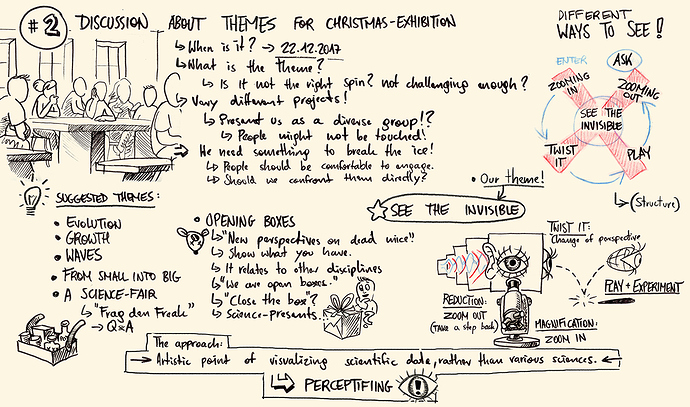 #2 DISCUSSION ABOUT THEMES FOR CHRISTMAS-EXHIBITION
↳ When is it? → 22.12.2017
↳ What is the theme?
↳ Is it not the right spin? not challenging enough?
↳ Very different projects!
↳ Present us as a diverse group!?
↳ People might not be touched!
He need something to break the ice!
↳ People should be comfortable to engage.
↳ Should we confront them directly?
DIFFERENT
WAYS TO SEE!
ENTER
ASK
ZOOMING
IN
ZOOMING
OUT
SEE THE
INVISIBLE
TWIST
IT
PLAY
↳ (Structure)
SUGGESTED THEMES:
• EVOLUTION
• GROWTH
• WAVES
• FROM SMALL INTO BIG
• A SCIENCE-FAIR
↳ "Frag den Freak"
→ Q&A
• OPENING BOXES
↳ "New perspectives on dead mice"?
↳ Show what you have.
↳ It relates to other disciplines
↳ "We are open boxes."
↳ "Close the box"?
↳ Science-presents.
• Our theme!
SEE THE INVISIBLE
TWIST IT:
Change of perspective
PLAY + EXPERIMENT
REDUCTION:
ZOOM OUT
(Take a step back)
MAGNIFICATION:
ZOOM IN
The approach:
Artistic point of visualizing scientific data, rather than various sciences.
↳ PERCEPTIFIING